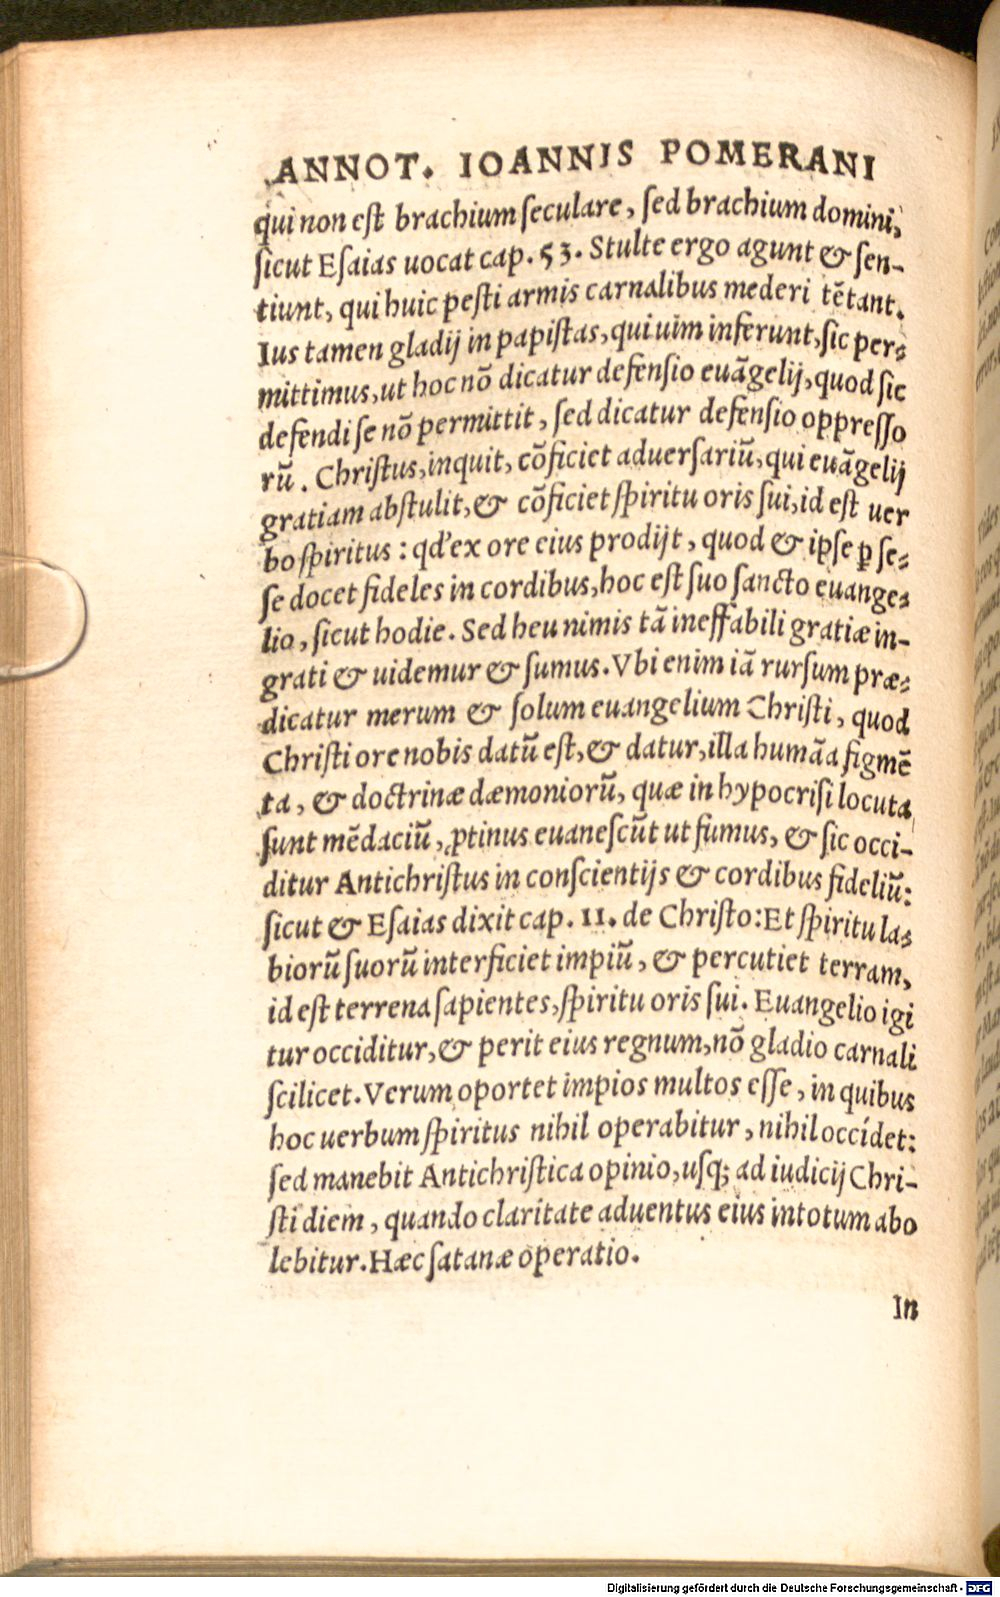 ANNOT. IOANNIS POMERANI
qui non eſt brachium ſeculare, ſed brachium domini,
ſicut Eſaias uocat cap. 53. Stulte ergo agunt & ſen-
tiunt, qui huic peſti armis carnalibus mederi tẽtant.
Ius tamen gladij in papiſtas, qui uim inferunt, ſic per-
mittimus, ut hoc nõ dicatur defenſio euãgelij, quod ſic
defendi ſe nõ permittit, ſed dicatur defenſio oppreſſo
rũ. Chriſtus, inquit, cõficiet aduerſariũ, qui euãgelij
gratiam abſtulit, & cõficiet ſpiritu oris ſui, id eſt uer
bo ſpiritus: qd' ex ore eius prodijt, quod & ipſe ꝑ ſe-
ſe docet fideles in cordibus, hoc eſt ſuo ſancto euange-
lio, ſicut hodie. Sed heu nimis tã ineffabili gratiæ in-
grati & uidemur & ſumus. Vbi enim iã rurſum præ-
dicatur merum & ſolum euangelium Chriſti, quod
Chriſti ore nobis datũ eſt, & datur, illa humãa figmẽ
ta, & doctrinæ dæmoniorũ, quæ in hypocriſi locuta
ſunt mẽdaciũ, ꝓtinus euaneſcũt ut fumus, & ſic occi-
ditur Antichriſtus in conſcientijs & cordibus fideliũ:
ſicut & Eſaias dixit cap. 11. de Chriſto: Et ſpiritu la-
biorũ ſuorũ interficiet impiũ, & percutiet terram,
id eſt terrena ſapientes, ſpiritu oris ſui. Euangelio igi
tur occiditur, & perit eius regnum, nõ gladio carnali
ſcilicet. Verum oportet impios multos eſſe, in quibus
hoc uerbum ſpiritus nihil operabitur, nihil occídet:
ſed manebit Antichriſtica opinio, uſq; ad iudicij Chri-
ſti diem, quando claritate aduentus eius in totum abo
lebitur. Hæc ſatanæ operatio.
In
Digitalisierung gefördert durch die Deutsche Forschungsgemeinschaft - DFG